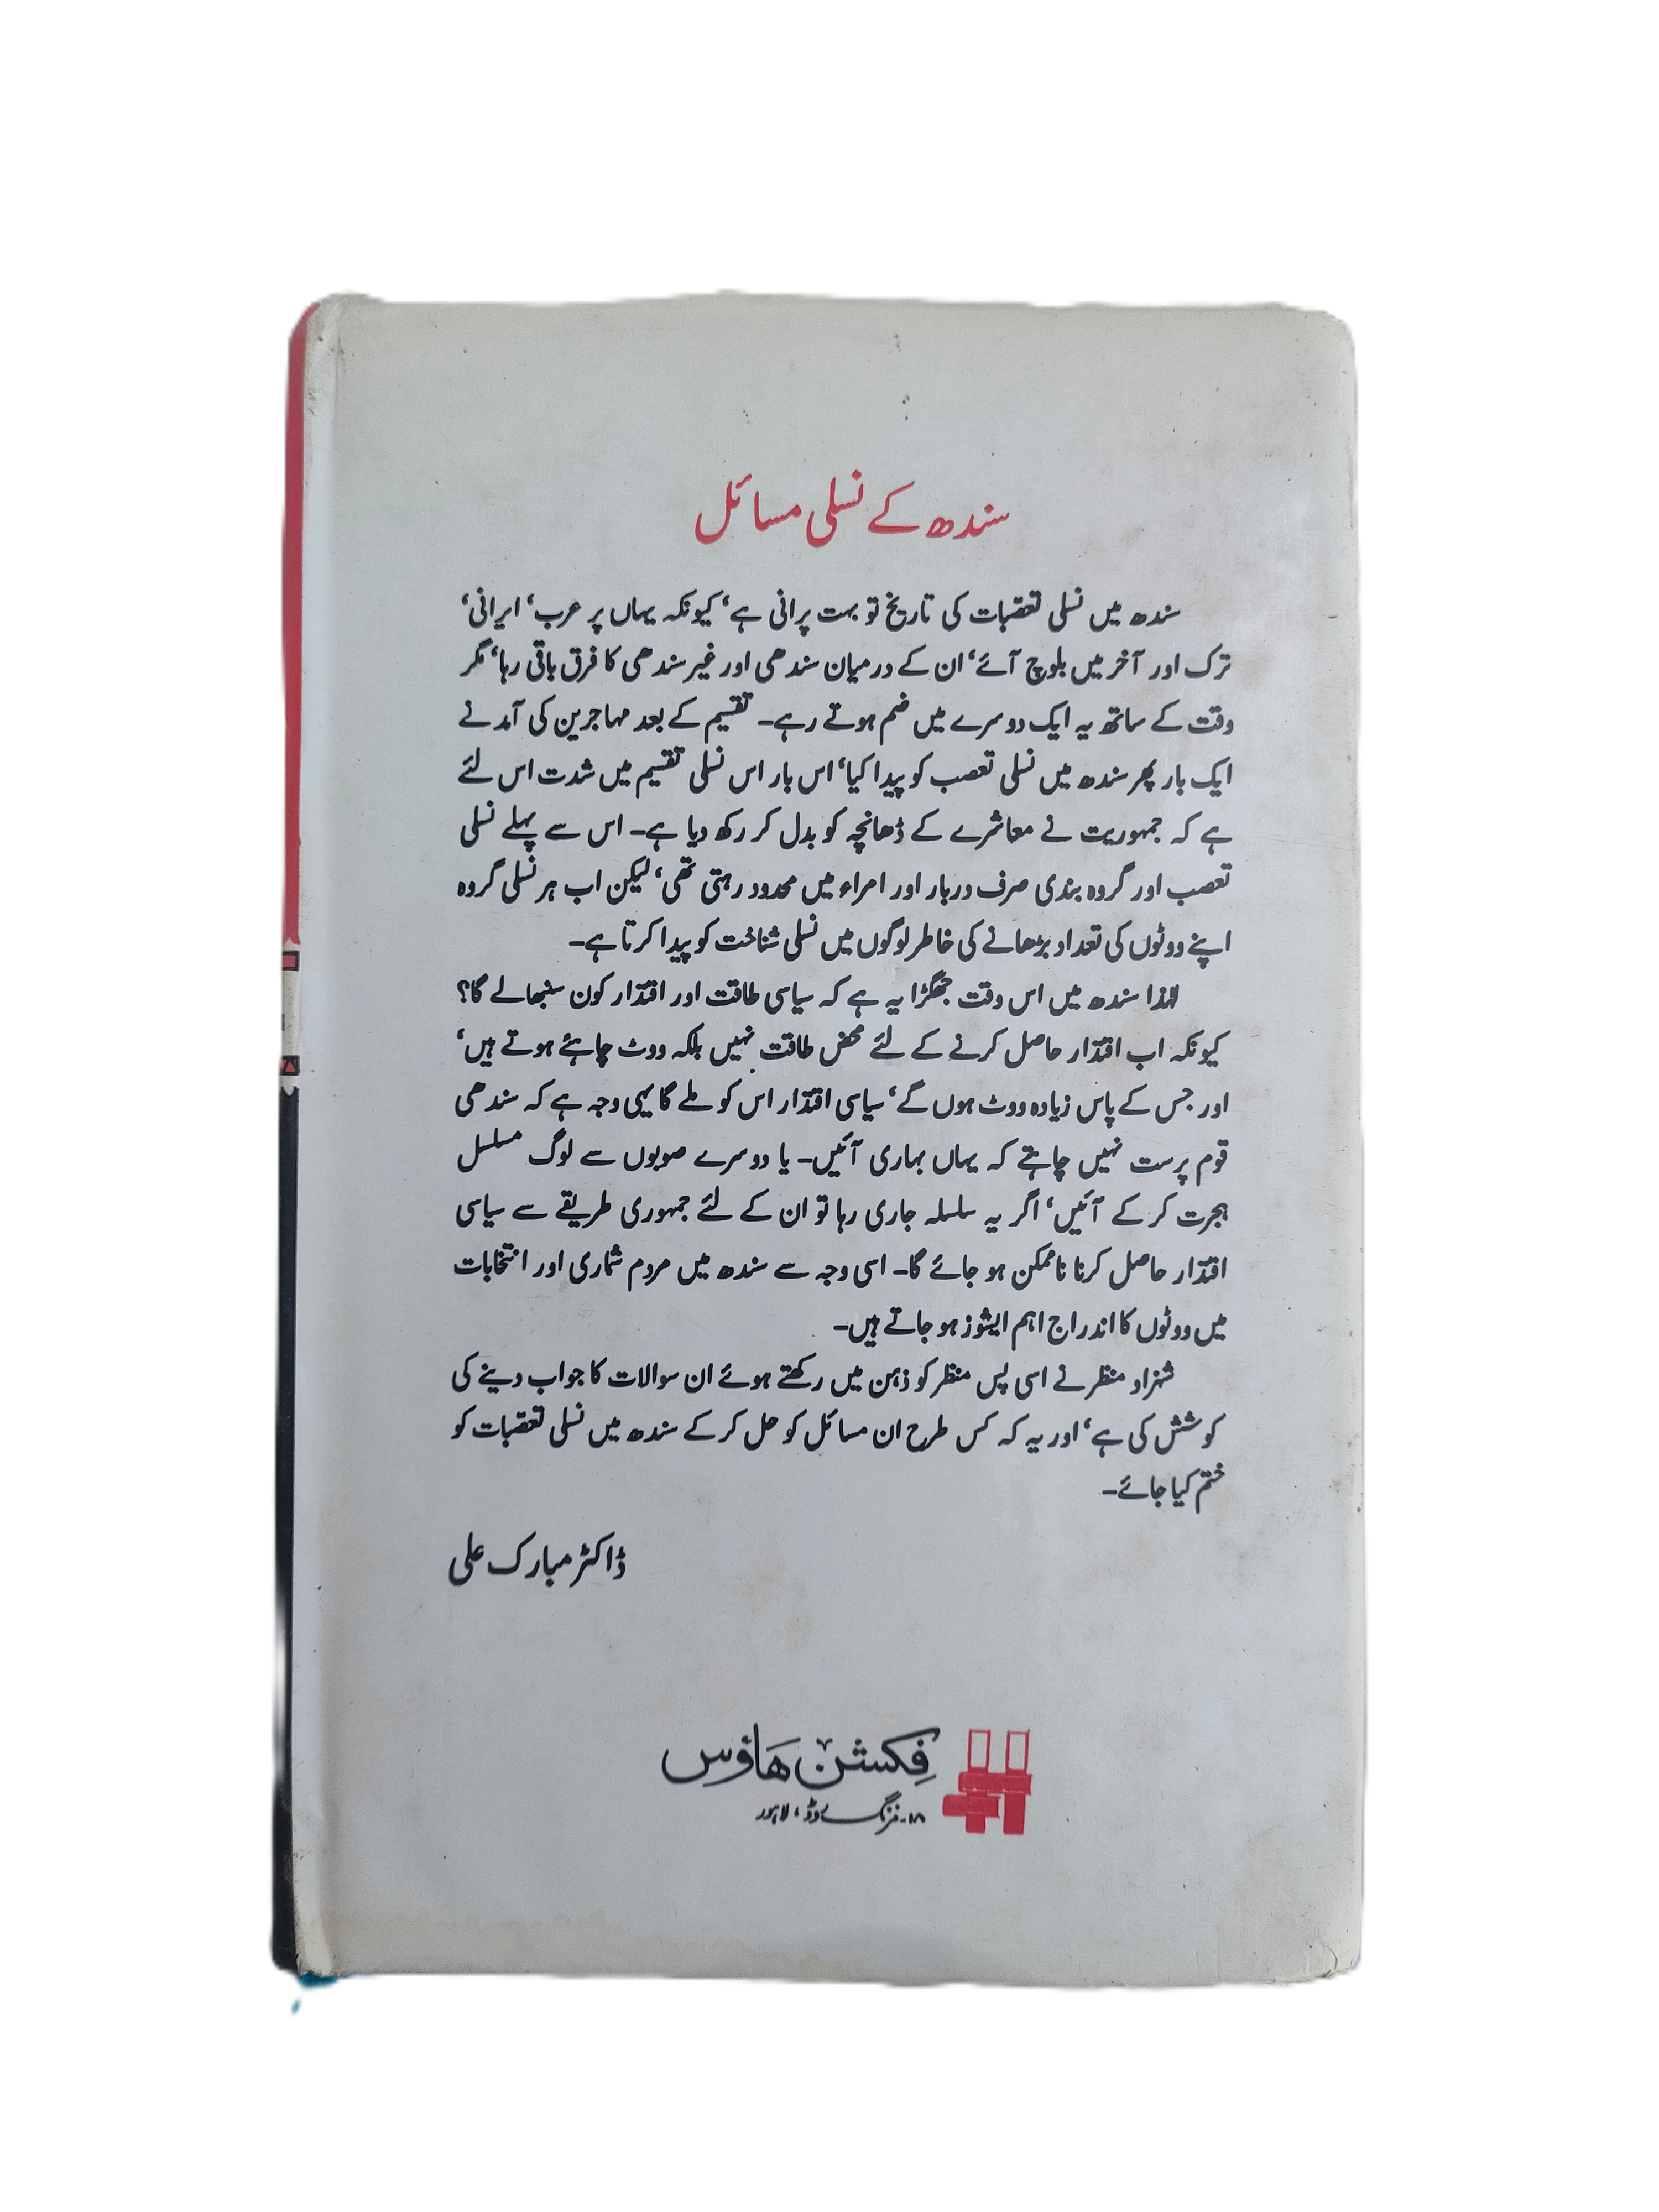 سندھ کے نسلی مسائل
سندھ میں نسلی تعصبات کی تاریخ تو بہت پرانی ہے، کیونکہ یہاں پر عرب، ایرانی،
ترک اور آخر میں بلوچ آئے، ان کے درمیان سندھی اور غیر سندھی کا فرق باقی رہا، مگر
وقت کے ساتھ یہ ایک دوسرے میں ضم ہوتے رہے۔ تقسیم کے بعد مہاجرین کی آمد نے
ایک بار پھر سندھ میں نسلی تعصب کو پیدا کیا، اس بار اس نسلی تقسیم میں شدت اس لئے
ہے کہ جمہوریت نے معاشرے کے ڈھانچہ کو بدل کر رکھ دیا ہے۔ اس سے پہلے نسلی
تعصب اور گروہ بندی صرف دربار اور امراء میں محدود رہتی تھی، لیکن اب ہر نسلی گروہ
اپنے ووٹوں کی تعداد بڑھانے کی خاطر لوگوں میں نسلی شناخت کو پیدا کرتا ہے۔
لہٰذا سندھ میں اس وقت جھگڑا یہ ہے کہ سیاسی طاقت اور اقتدار کون سنبھالے گا؟
کیونکہ اب اقتدار حاصل کرنے کے لئے محض طاقت نہیں بلکہ ووٹ چاہئے ہوتے ہیں،
اور جس کے پاس زیادہ ووٹ ہوں گے، سیاسی اقتدار اس کو ملے گا یہی وجہ ہے کہ سندھی
قوم پرست نہیں چاہتے کہ یہاں بہاری آئیں۔ یا دوسرے صوبوں سے لوگ مسلسل
ہجرت کر کے آئیں، اگر یہ سلسلہ جاری رہا تو ان کے لئے جمہوری طریقے سے سیاسی
اقتدار حاصل کرنا ناممکن ہو جائے گا۔ اسی وجہ سے سندھ میں مردم شماری اور انتخابات
میں ووٹوں کا اندراج اہم ایشوز ہو جاتے ہیں۔
شہزاد منظر نے اسی پس منظر کو ذہن میں رکھتے ہوئے ان سوالات کا جواب دینے کی
کوشش کی ہے، اور یہ کہ کس طرح ان مسائل کو حل کر کے سندھ میں نسلی تعصبات کو
ختم کیا جائے۔
ڈاکٹر مبارک علی
فکشن ھاؤس
۱۸۔ مزنگ روڈ، لاہور